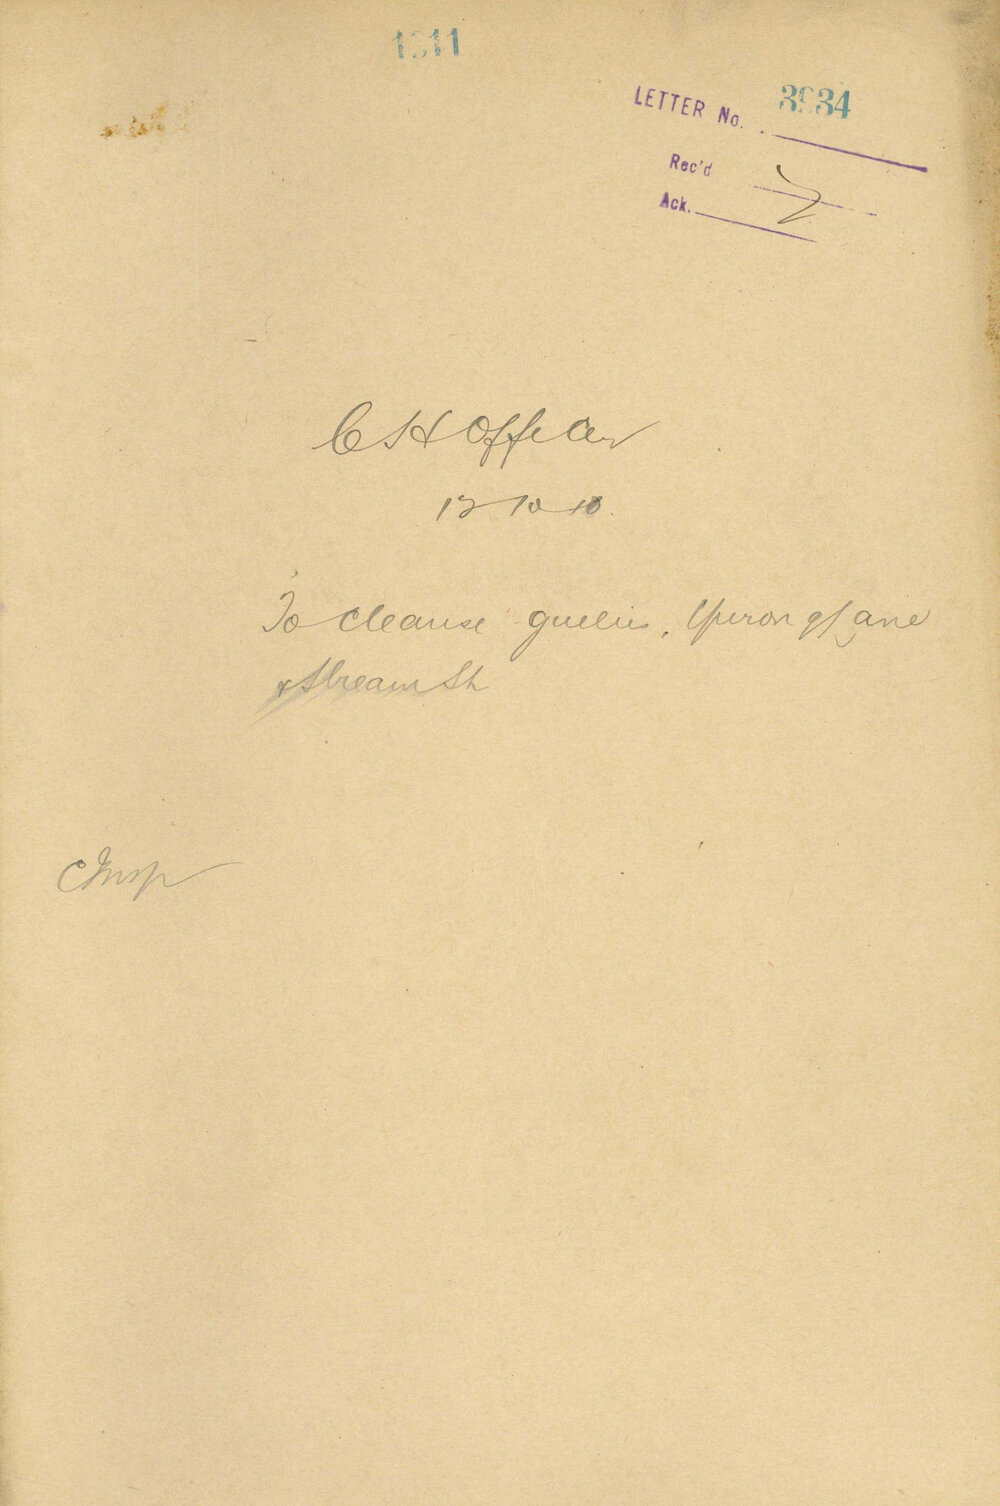 1911
LETTER No. 3934
Rec'd
Ack.
C H Officer
12 10 10.
To cleanse gullies, Yurong Lane
& Stream St
C Insp